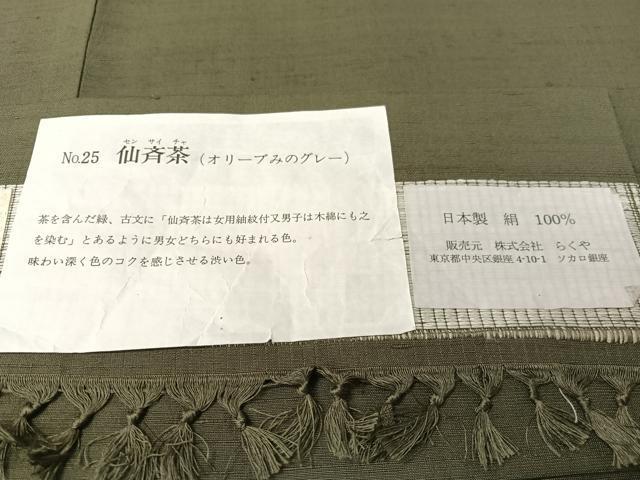 セン サイ チャ
No.25 仙斉茶（オリーブみのグレー）
茶を含んだ緑、古文に「仙斉茶は女用紬紋付又男子は木綿にも之
を染む」とあるように男女どちらにも好まれる色。
味わい深く色のコクを感じさせる渋い色。
日本製 絹 100%
販売元 株式会社 らくや
東京都中央区銀座 4-10-1 ソカロ銀座